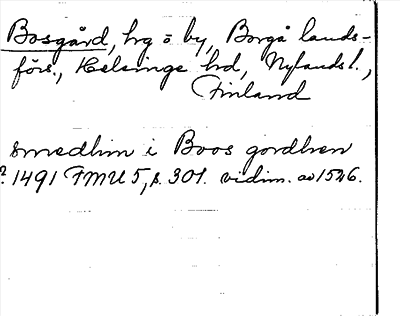 Bosgård, hrg o by, Borgå lands-
förs., Helsinge hd, Nylands l.,
Finland
smedhin i Boos gordhen
? 1491 FMU 5, s. 301. vidim. av 1526.